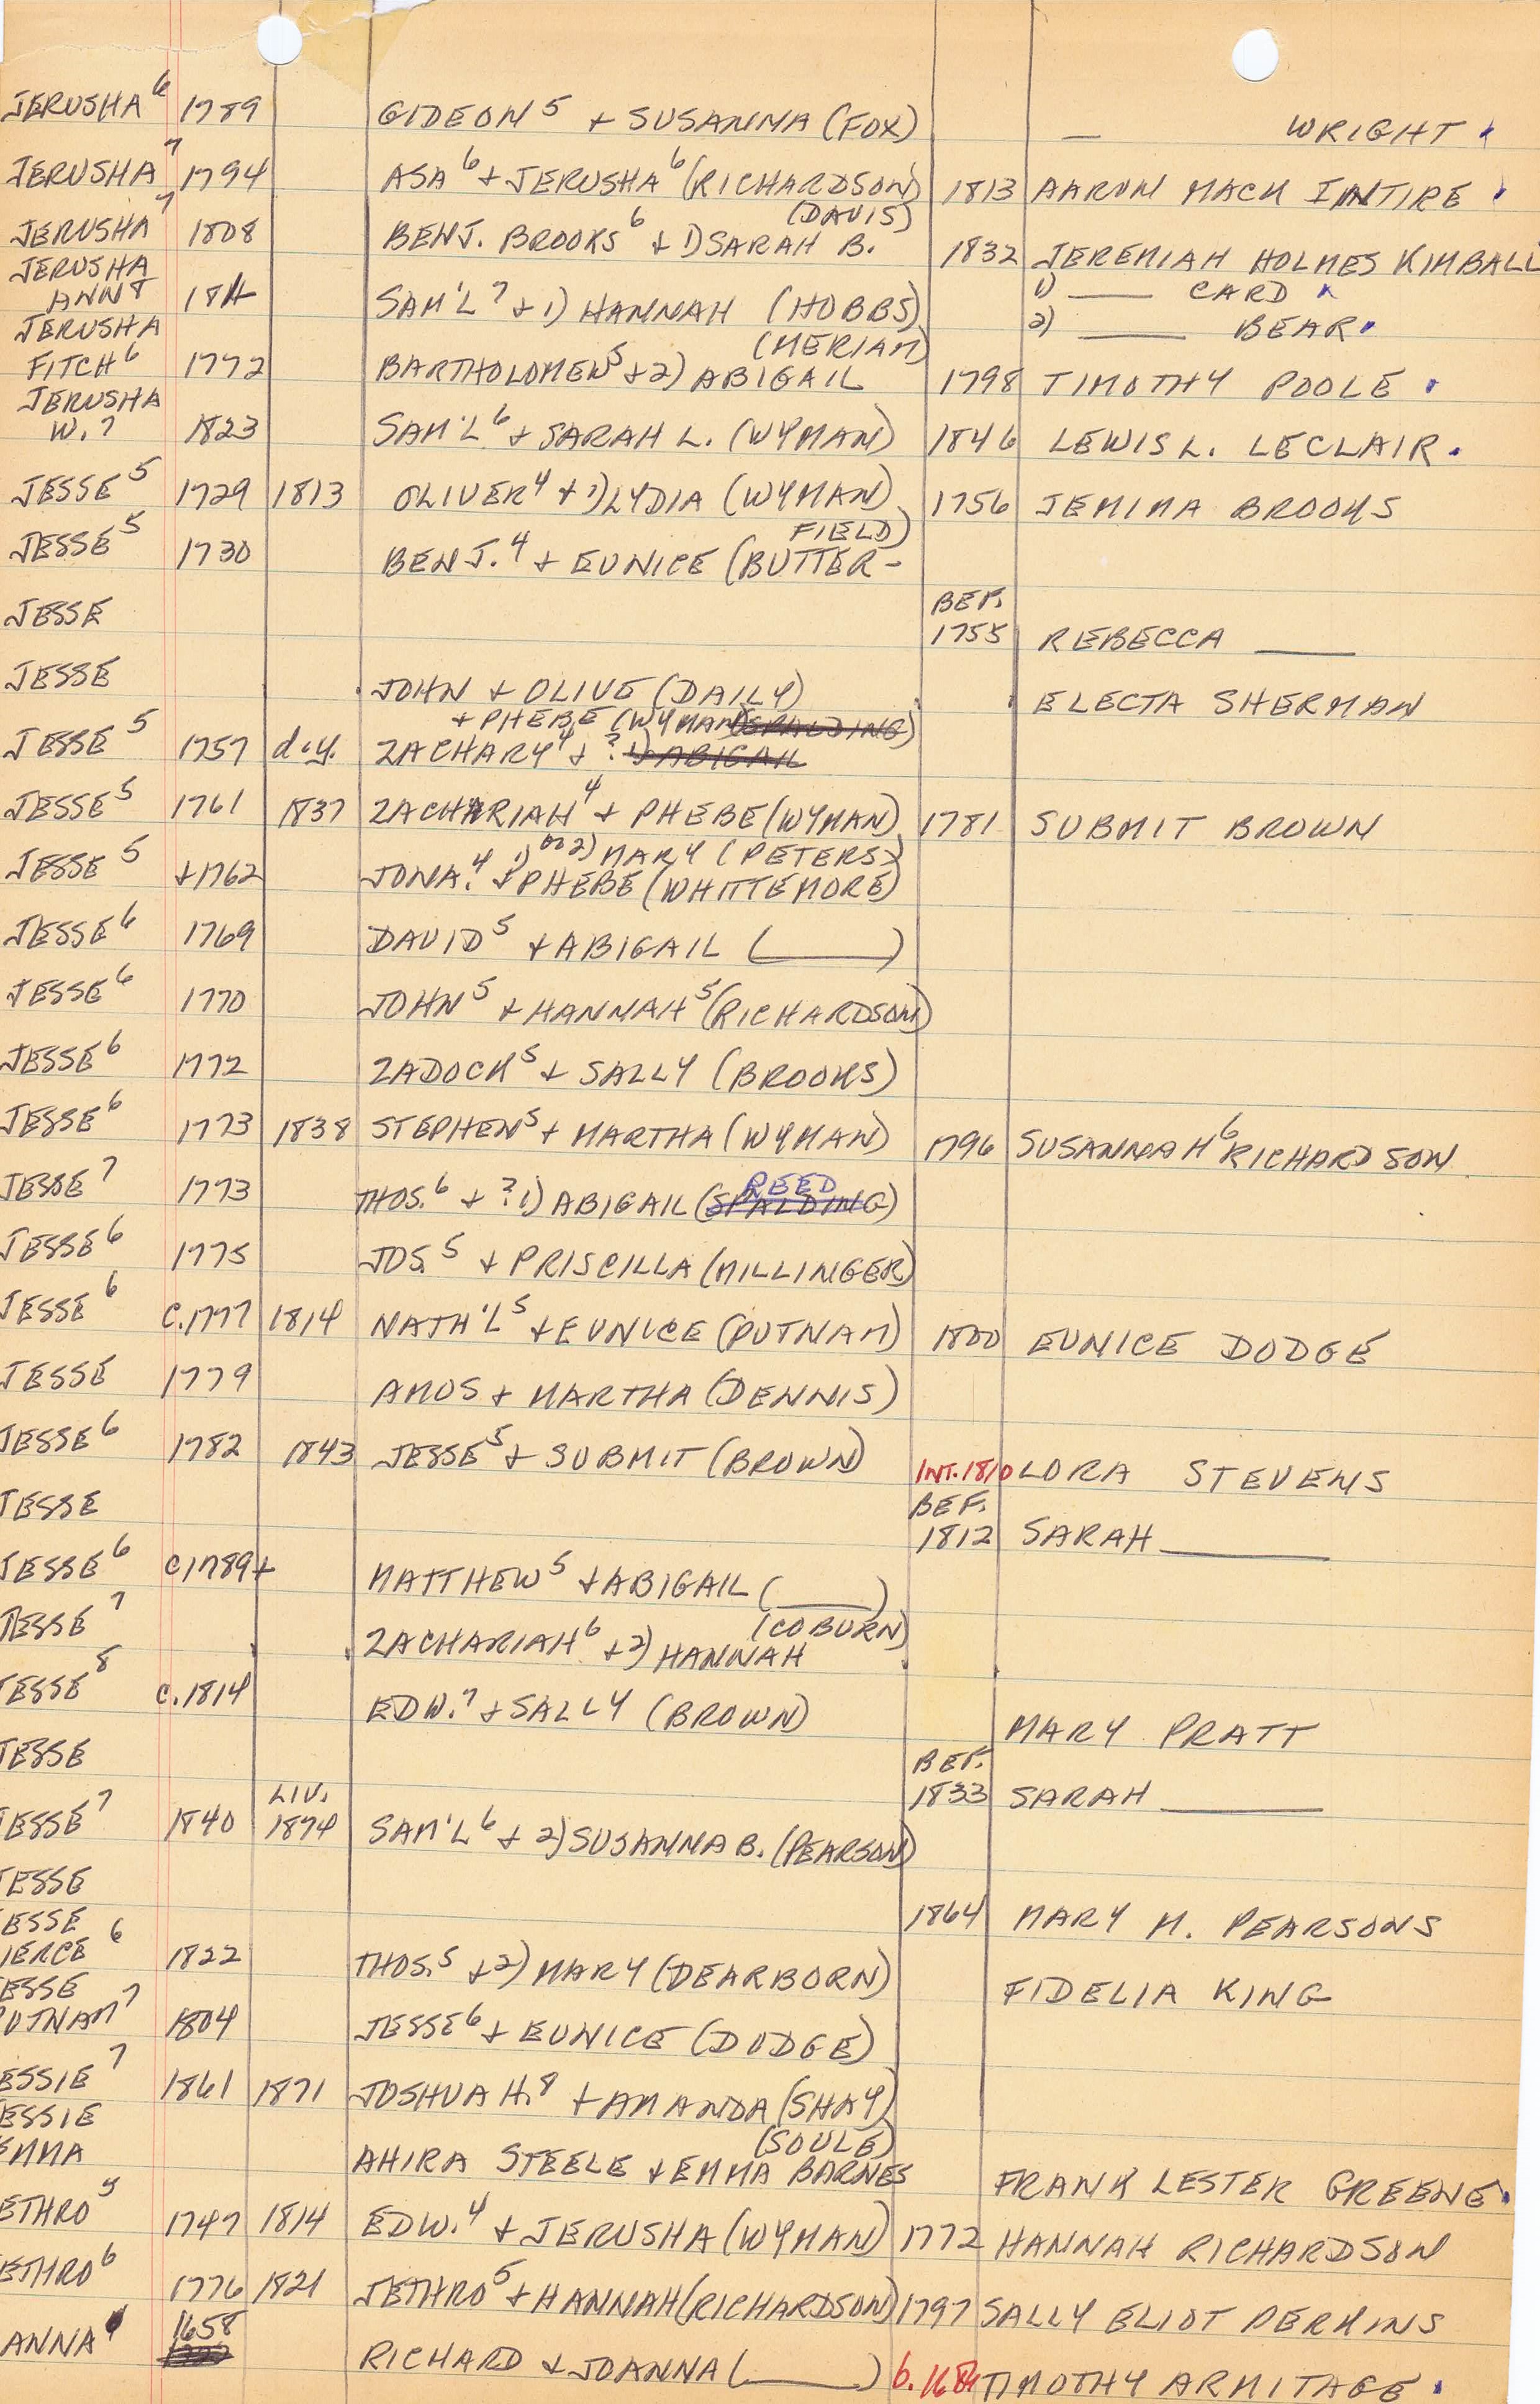 JERUSHA 6 1789 GIDEON 5 + SUSANNA (FOX) — WRIGHT
JERUSHA 7 1794 ASA 6 + JERUSHA 6 (RICHARDSON) 1813 AARON MACK INTIRE
(DAVIS)
JERUSHA 7 1808 BENJ. BROOKS 6 + 1) SARAH B. 1832 JEREMIAH HOLMES KIMBALL
JERUSHA 1) ___ CARD
ANN 8 SAM'L 7 + 1) HANNAH (HOBBS) 2) ___ BEAR
JERUSHA (MERIAM)
FITCH 6 1772 BARTHOLOMEW 5 + 2) ABIGAIL 1798 TIMOTHY POOLE
JERUSHA
W. 7 1823 SAM'L 6 + SARAH L. (WYMAN) 1846 LEWIS L. LECLAIR
JESSE 5 1729 1813 OLIVER 4 + 1) LYDIA (WYMAN) 1756 JEMIMA BROOKS
FIELD)
JESSE 5 1730 BENJ. 4 + EUNICE (BUTTER-
JESSE BEF. 1755 REBECCA ___
JESSE JOHN + OLIVE (DAILY) ELECTA SHERMAN
+ PHEBE (WYMAN) SPALDING)
JESSE 5 1757 d.y. ZACHARY 4 + ? 1) ABIGAIL
JESSE 5 1761 1837 ZACHARIAH 4 + PHEBE (WYMAN) 1781 SUBMIT BROWN
1) or 2) MARY (PETERS)
JESSE 5 +1762 JONA. 4 + PHEBE (WHITTEMORE)
JESSE 6 1769 DAVID 5 + ABIGAIL (___)
JESSE 6 1770 JOHN 5 + HANNAH 5 (RICHARDSON)
JESSE 6 1772 ZADOCK 5 + SALLY (BROOKS)
JESSE 6 1773 1838 STEPHEN 5 + MARTHA (WYMAN) 1796 SUSANNAH 6 RICHARDSON
REED
JESSE 7 1773 THOS. 6 + ? 1) ABIGAIL (SPALDING)
JESSE 6 1775 JOS. 5 + PRISCILLA (MILLINGER)
JESSE 6 C.1777 1814 NATH'L 5 + EUNICE (PUTNAM) 1800 EUNICE DODGE
JESSE 1779 AMOS + MARTHA (DENNIS)
JESSE 6 1782 1843 JESSE 5 + SUBMIT (BROWN) INT. 1810 LORA STEVENS
JESSE BEF. 1812 SARAH ___
JESSE 6 C1789+ MATTHEW 5 + ABIGAIL (___)
(COBURN)
JESSE 7 ZACHARIAH 6 + 2) HANNAH
ESSE 8 C.1814 EDW. 7 + SALLY (BROWN) MARY PRATT
ESSE BEF. 1833 SARAH ___
LIV.
ESSE 7 1840 1874 SAM'L 6 + 2) SUSANNA B. (PEARSON)
ESSE 1864 MARY M. PEARSONS
ESSE
IERCE 6 1822 THOS. 5 + 2) MARY (DEARBORN) FIDELIA KING
ESSE
PUTNAM 7 1804 JESSE 6 + EUNICE (DODGE)
ESSIE 7 1861 1871 JOSHUA H. 8 + AMANDA (SHAY)
ESSIE (SOULE)
EMMA AHIRA STEELE + EMMA BARNES FRANK LESTER GREENE
ETHRO 5 1747 1814 EDW. 4 + JERUSHA (WYMAN) 1772 HANNAH RICHARDSON
ETHRO 6 1776 1821 JETHRO 5 + HANNAH (RICHARDSON) 1797 SALLY ELIOT PERKINS
1658
ANNA RICHARD + JOANNA (___) b. TIMOTHY ARMITAGE